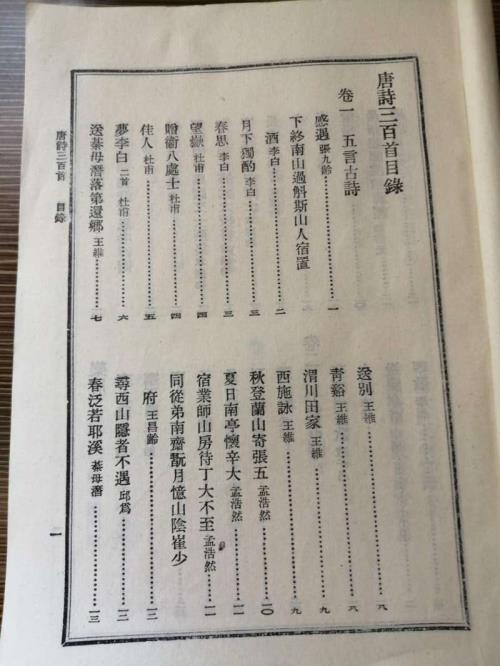 唐詩三百首目錄
卷一 五言古詩
感遇 張九齡…………一
下終南山過斛斯山人宿置
酒 李白…………二
月下獨酌 李白…………三
春思 李白…………三
望嶽 杜甫…………四
贈衞八處士 杜甫…………四
佳人 杜甫…………五
夢李白 二首 杜甫…………六
送綦毋潛落第還鄉 王維…………七
送別 王維…………八
青谿 王維…………八
渭川田家 王維…………九
西施詠 王維…………九
秋登蘭山寄張五 孟浩然…………一〇
夏日南亭懷辛大 孟浩然…………一一
宿業師山房待丁大不至 孟浩然…………一一
同從弟南齋翫月憶山陰崔少
府 王昌齡…………一二
尋西山隱者不遇 邱爲…………一二
春泛若耶溪 綦毋潛…………一三
唐詩三百首 目錄
一